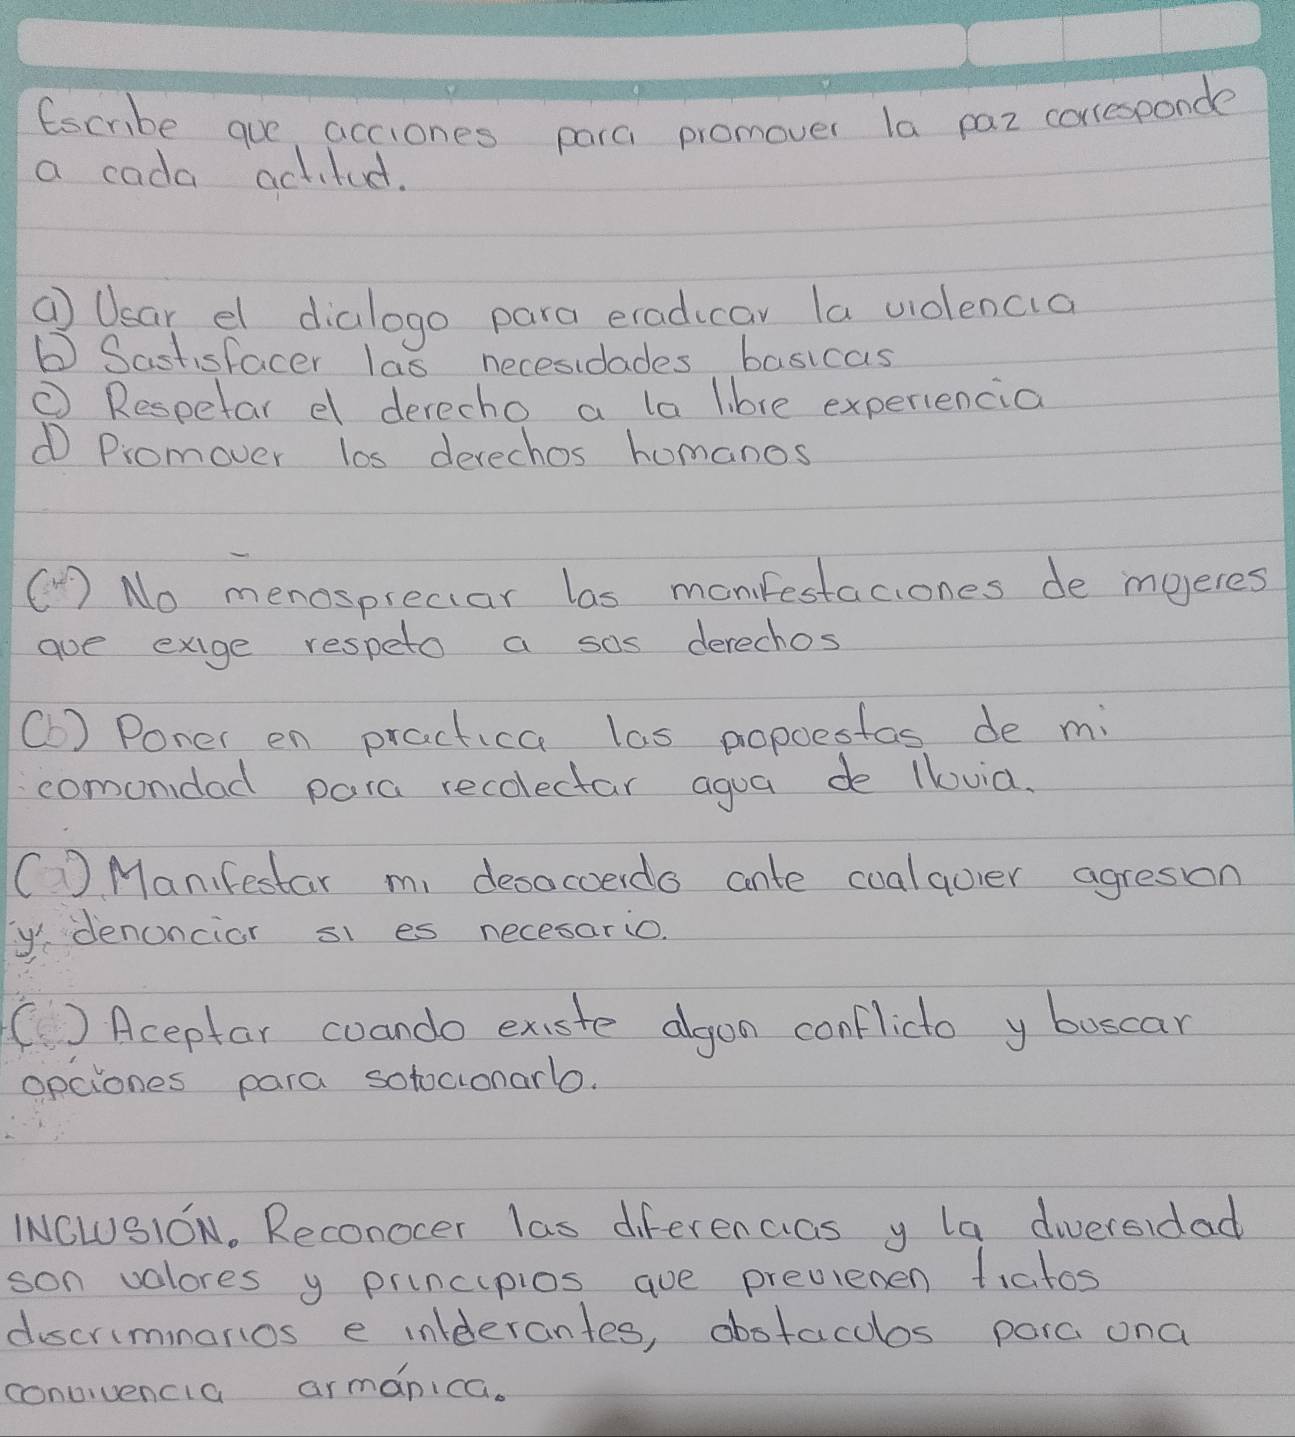 Escribe que acciones para promover la paz corresponde
a cada actitud.
a) Usar el dialogo para eradicar la violencia
b) Sastisfacer las necesidades basicas
c) Respetar el derecho a la libre experiencia
d) Promover los derechos humanos
( ) No menospreciar las manifestaciones de mujeres
que exige respeto a sus derechos
(b) Poner en practica las propuestas de mi
comunidad para recolectar agua de lluvia.
(a) Manifestar mi desacuerdo ante cualquier agresion
y denunciar si es necesario.
(c) Aceptar cuando existe algun conflicto y buscar
opciones para solucionarlo.
INCLUSIÓN. Reconocer las diferencias y la diversidad
son valores y principios que previenen tratos
discriminarios e intolerantes, obstaculos para una
convivencia armónica.